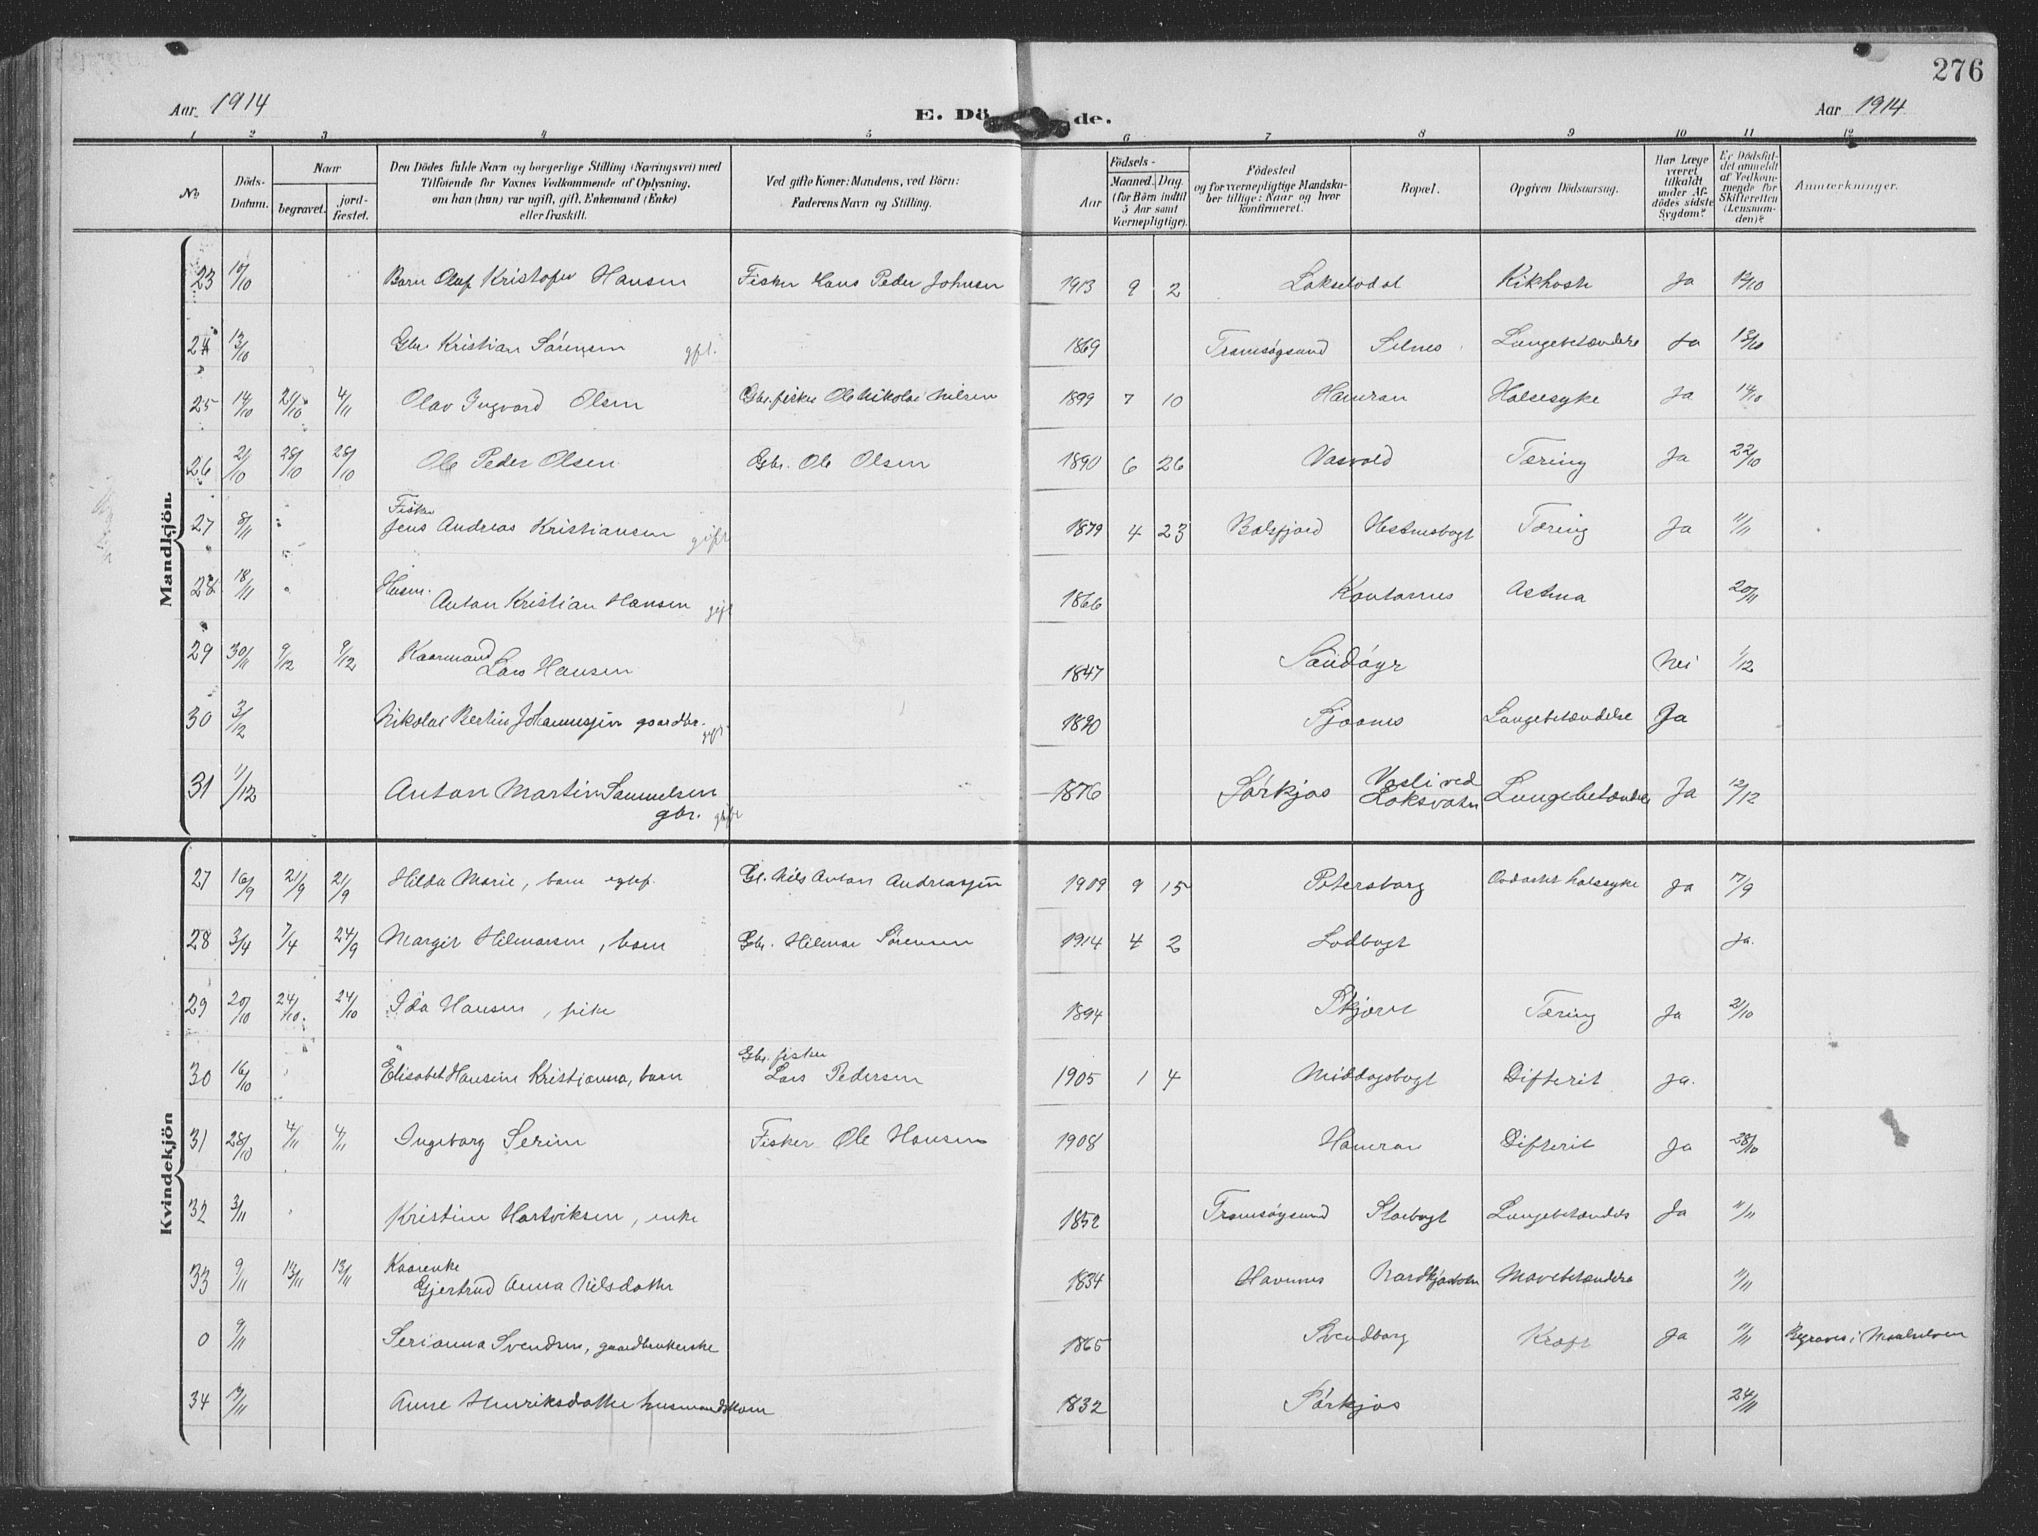 276
Aar 1914
E. Dö de.
Aar 1914
1 2 3 4 5 6 7 8 9 10 11 12
No
Döds-Datum.
Naar
begravet.
jord-fæstet.
Den Dödes fulde Navn og borgerlige Stilling (Næringsvei) med
Tilföiende for Voxnes Vedkommende af Oplysning,
om han (hun) var ugift, gift, Enkemand (Enke)
eller fraskilt.
Ved gifte Koner: Mandens, ved Börn:
Faderens Navn og Stilling.
Födsels-
Aar
Maaned. Dag
(for Börn indtil
5 Aar samt
Værnepligtige).
Födested
og for værnepligtige Mandska-
ber tillige: Naar og hvor
konfirmeret.
Bopæl.
Opgiven Dödsaarsag.
Har Læge
været
tilkaldt
under Af-
dödes sidste
Sygdom?
Er Dödsfal-
det anmeldt
af Vedkom-
mende for
Skifteretten
(Lensman-
den)?
Anmærkninger.
Mandkjön.
23 10/10 Barn Oluf Kristofer Hansen Fisker Hans Peder Johnsen 1913 9 2 Lakselvdal Kikhoste Ja 12/10
24 13/10 Gbr. Kristian Sörensen gft. 1869 Tromsøysund Selnes Lungebetændelse Ja 13/10
25 14/10 21/10 4/11 Olav Ingvard Olsen Gbr. fisker Ole Nikolai Nilsen 1899 7 10 Hamran Halsesyke Ja 14/10
26 21/10 28/10 28/10 Ole Peder Olsen Gbr. Ole Olsen 1890 6 26 Vasvold Tæring Ja 22/10
27 8/11 " Fisker
Jens Andreas Kristiansen gift 1879 4 23 Balsfjord Hestnesbogt Tæring Ja 11/11
28 18/11 " Husm.
Anton Kristian Hansen gift 1866 Kantornes Astma 20/11
29 30/11 9/12 9/12 Kaarmand
Lars Hansen 1847 Sandøyr Nei 1/12
30 3/12 Nikolai Bertin Johannesjen gaardbr. gift. 1890 Tjosnes Lungebetændelse Ja
31 11/12 Anton Martin Samuelsen
gbr. gift 1876 Sørkjos Vasli ved
Laksvatn Lungebetændels Ja 12/12
Kvindekjön
27 16/9 21/9 21/9 Hilda Marie, barn egtef. Gl. Nils Anton Andreasjen 1909 9 15 Petersborg Ondartet halssyke Ja 7/9
28 3/4 7/4 24/9 Margit Hilmarsen, barn Gbr. Hilmar Sørensen 1914 4 2 Lodbogt Ja.
29 20/10 24/10 24/10 Ida Hansen, pike 1894 Skjæret Tæring Ja 21/10
30 16/10 " Elisabet Hansine Kristjanna, barn Gbr. fisker
Lars Pedersen 1905 1 4 Middagsbogt Difterit Ja.
31 28/10 4/11 4/11 Ingeborg Serine Fisker Ole Hansen 1908 Hamran Difterit Ja 28/10
32 3/11 " Kristine Hartviksen, enke 1852 Tromsøysund Storbogt Lungebetændels Ja 11/11
33 9/11 13/11 13/11 Kaarenke
Gjertrud Anna Nilsdatter 1834 Havnnes Nordkjosbotn Mavebetændelse 11/11
0 9/11 Serianna Svendsen, gaardbrukerske 1865 Svendborg Kræft Ja 11/11 Begraves i Maalselven
34 17/11 Anne Henriksdatter husmandskone 1832 Sørkjos 24/11